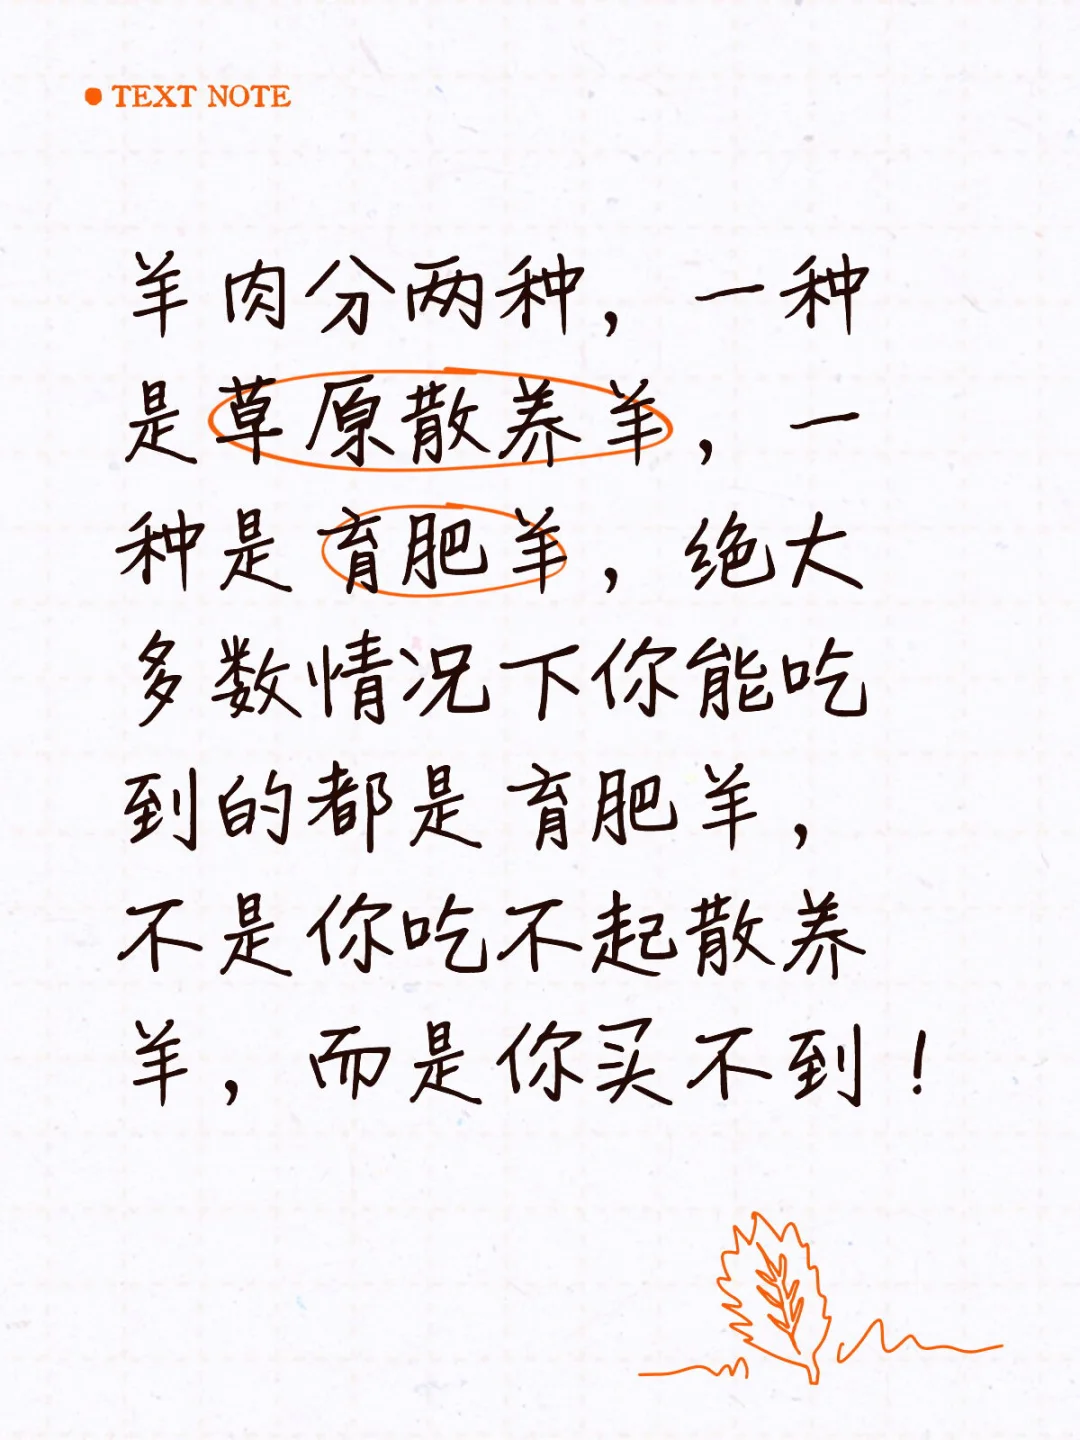 TEXT NOTE
羊肉分两种，一种
是草原散养羊，一
种是育肥羊，绝大
多数情况下你能吃
到的都是育肥羊，
不是你吃不起散养
羊，而是你买不到！